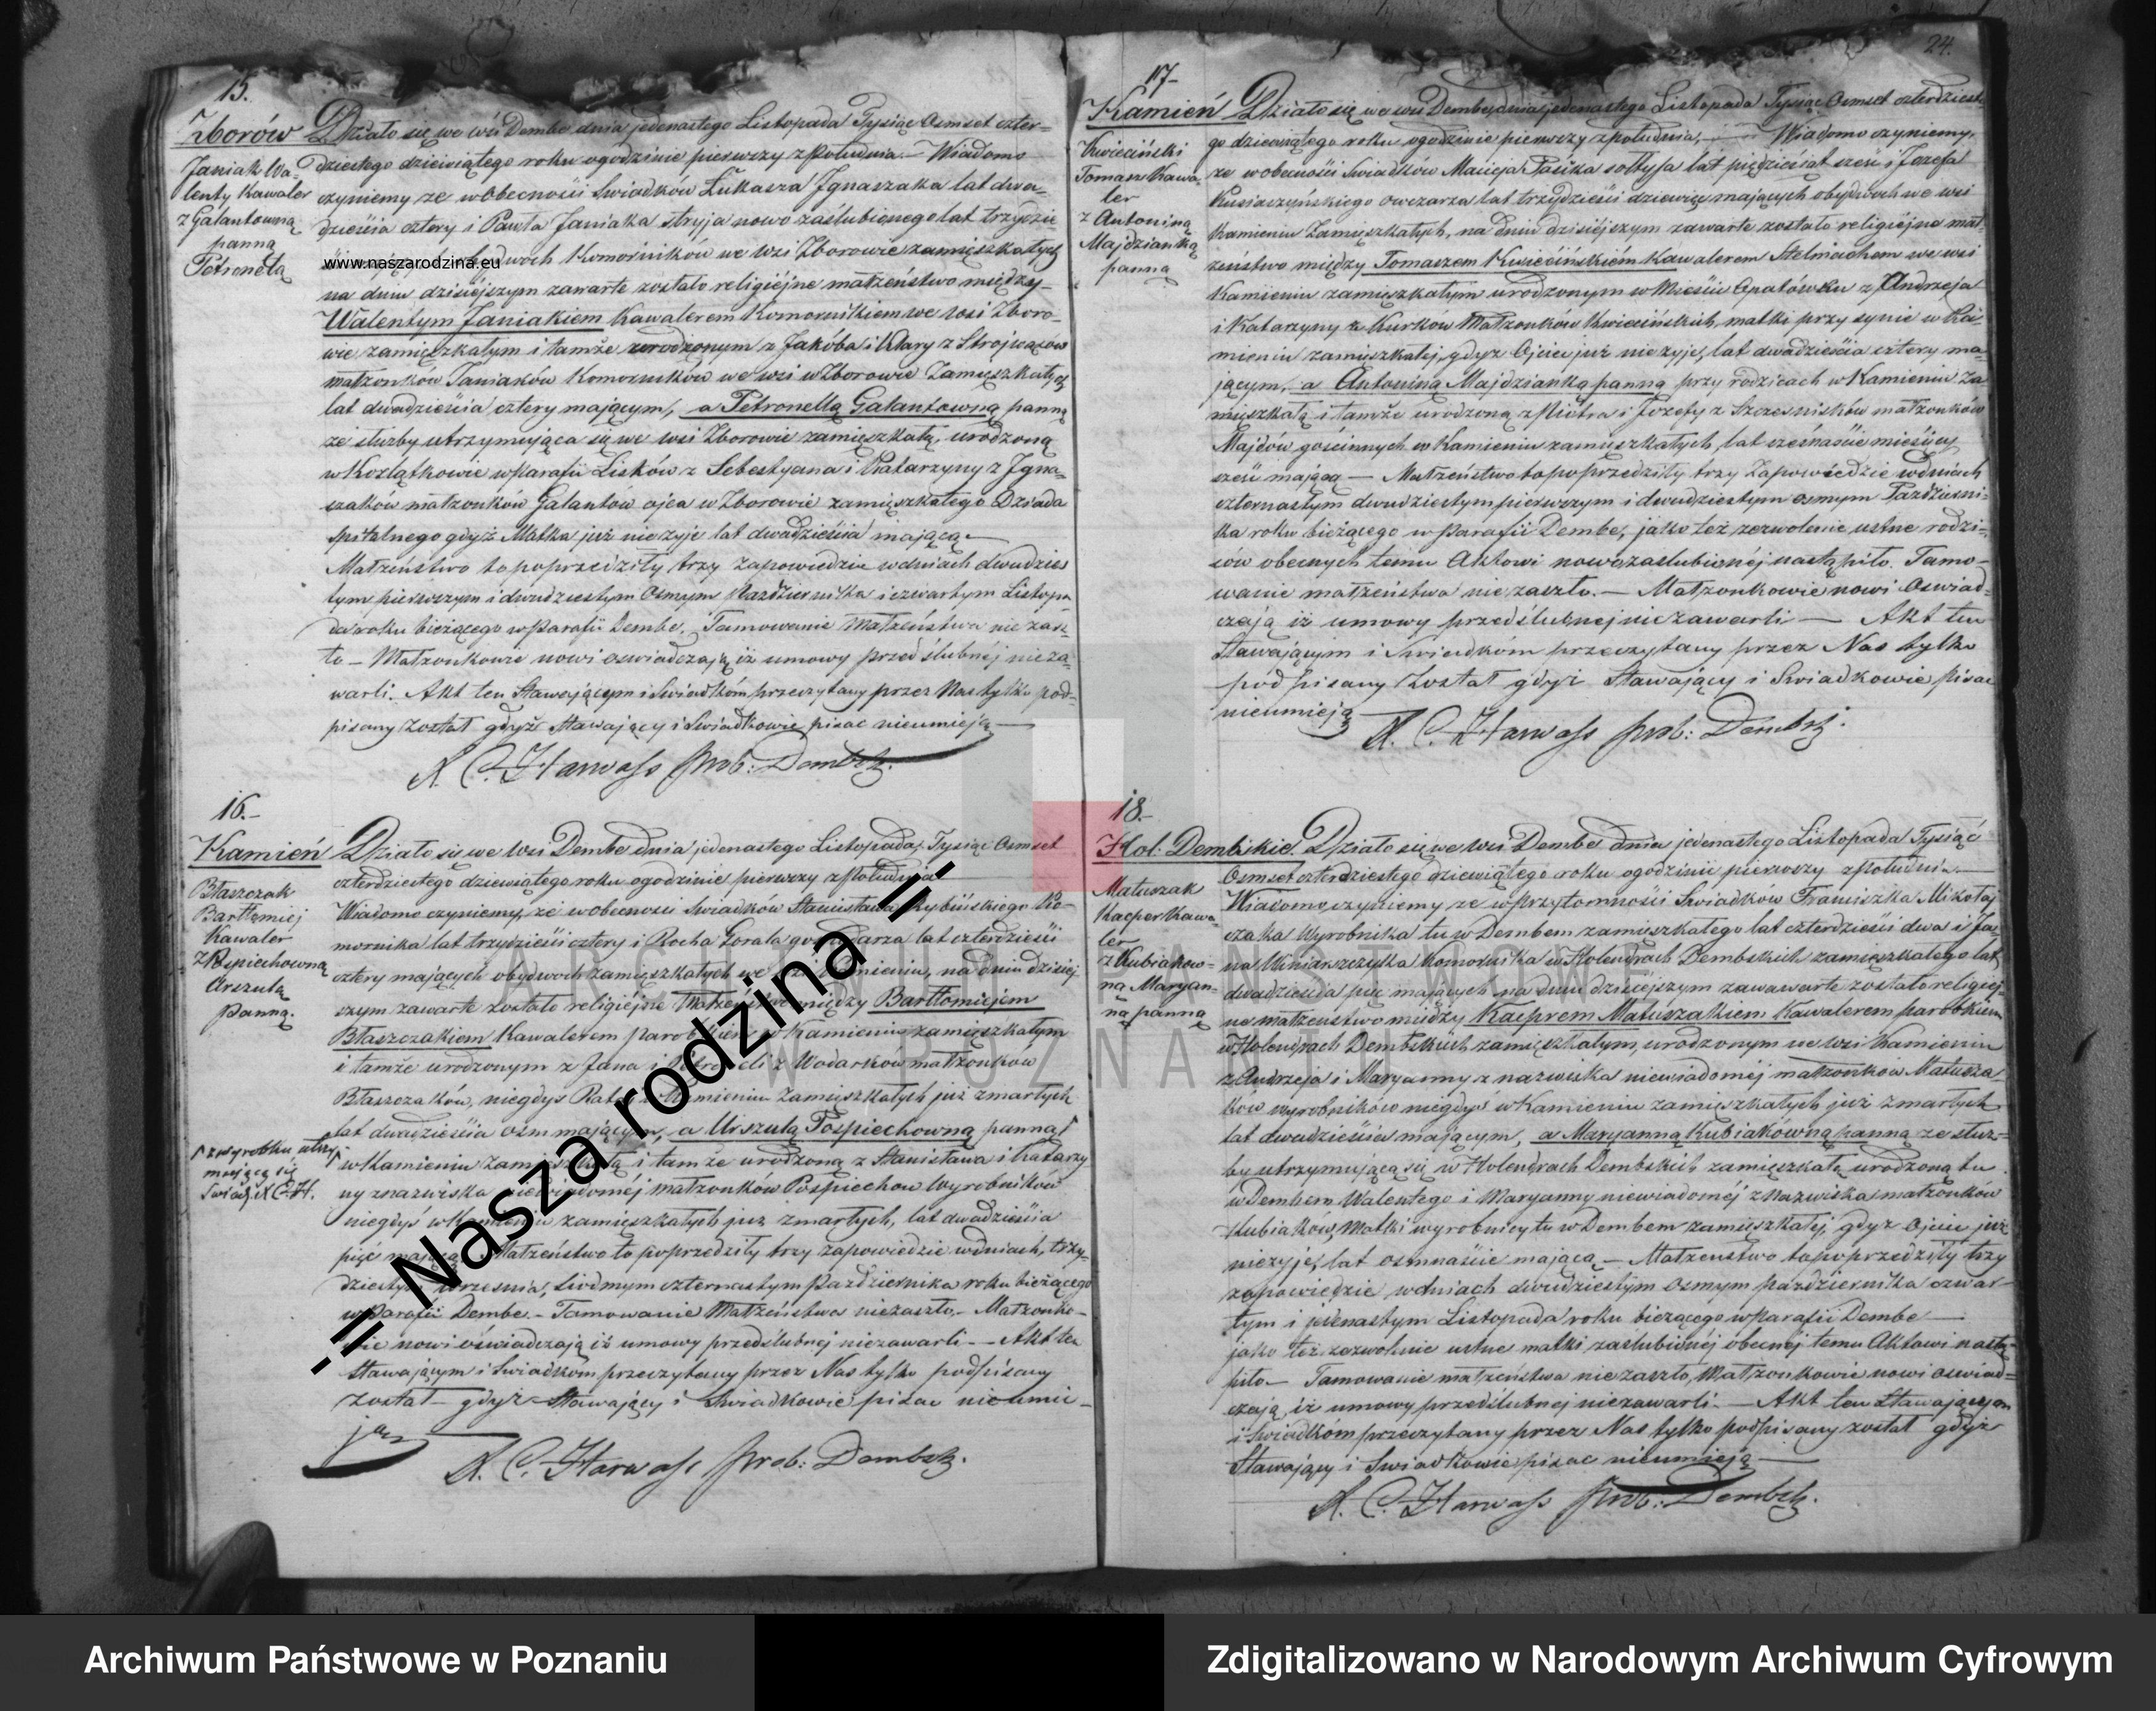 24.
15.
Zborów
Janiak Wa-
lenty Kawaler
z Galantowną
panną
Petronelą
Działo się we wsi Dembe dnia jedenastego Listopada Tysiąc Osmset czter-
dziestego dziewiątego roku o godzinie pierwszy z południa. — Wiadomo
czyniemy ze w obecności Swiadków Łukasza Ignaszaka lat dwa-
dzieścia cztery i Pawła Janiaka stryja nowo zaślubionego lat trzydzie-
www.naszarodzina.eu
Komorników we wsi Zborowie zamięszkałych
na dniu dzisiejszym zawarte zostało religiejne małżeństwo między-
Walentym Janiakiem Kawalerem Komornikiem we wsi Zboro-
wie zamięszkałym i tamże urodzonym z Jakóba i Klary z
małzonkow Janiaków Komorników we wsi w Zborowie Zamięszkałych
lat dwadzieścia cztery mającym, a Petronellą Galantowną panną
ze służby utrzymująca się we wsi Zborowie zamięszkałą, urodzoną
w Koźlątkowie w Parafii Lisków z Sebestyana i Katarzyny z Igna-
szaków małzonków Galantow ojca w Zborowie zamięszkałego Dziada
Spitalnego gdyż Matka już nie zyje lat dwadzieścia mającą —
Małzeństwo to poprzedziły trzy zapowiedzie w dniach dwudzies
tym pierwszym i dwudziestym Osmym Października i czwartym Listopa
da roku bieżącego w Parafii Dembe. Tamowanie Małzeństwa nie zasz-
ło — Małzonkowie nowi oswiadczają iż umowy przed ślubnej nieza-
warli. Akt ten Stawającym i Swiadkom przeczytany przez Nas tylko pod-
pisany został gdyż Stawający i Swiadkowie pisac nieumieją —
X. C. Harwass prob: Dembsk.
16.-
Kamień
Błaszczak
Bartłomiej
Kawaler
z Pospiechowną
Urszulą
panną.
Działo się we wsi Dembe dnia jedenastego Listopada Tysiąc Osmset
czterdziestego dziewiątego roku o godzinie pierwszy z południa
Wiadomo czyniemy, ze w obecnosci Swiadków Stanisława Rybińskiego Ko-
mornika lat trzydzieści cztery i Rocha Gorala gospodarza lat czterdzieści
cztery mających obydwoch zamięszkałych we wsi Kamieniu, na dniu dzisiej
szym zawarte zostało religiejne Małzeństwo między Bartłomiejem
Błaszczakiem Kawalerem parobkiem w Kamieniu zamięszkałym
i tamże urodzonym z Jana i z Wodarków małzonkow
Błaszczaków, niegdyś w Kamieniu zamięszkałych już zmarłych
lat dwadzieścia osm mającym, a Urszulą Pospiechowną panną
z wyrobku utrzy
mującą się
w Kamieniu zamięszkałą i tamże urodzoną z Stanisława i Katarzy
ny z nazwiska niewiadoméj małzonków Pospiechow Wyrobników
niegdyś w Kamieniu zamięszkałych już zmarłych, lat dwadzieścia
pięć mającą. Małzeństwo to poprzedziły trzy zapowiedzie w dniach, trzy-
dziestym Wrzesnia, Siodmym czternastym Października roku bieżącego
w Parafii Dembe. - Tamowanie Małzeństwa niezaszło. - Małzonko-
wie nowi oświadczają iż umowy przedślubnej niezawarli. — Akt ten
Stawającym i Swiadkom przeczytany przez Nas tylko podpisany
został — gdyż Stawający i Swiadkowie pisac nieumie-
ją
X. C. Harwass prob: Dembsk.
17-
Kamień
Kwieciński
Tomasz Kawa-
ler
z Antoniną
Majdzianką
panną
Działo się we wsi Dembe dnia jedenastego Listopada Tysiąc Osmset czterdziest
go dziewiątego roku o godzinie pierwszy z południa, — Wiadomo czyniemy,
ze w obecności Swiadków Macieja sołtysa lat pięćdziesiąt sześć i Józefa
owczarza lat trzydzieści dziewięć mających obydwoch we wsi
Kamieniu Zamięszkałych, na dniu dzisiejszym zawarte zostało religiejne mał-
zeństwo między Tomaszem Kwiecińskiém Kawalerem Stelmachem we wsi
Kamieniu zamięszkałym urodzonym w Mieście Opatówku z Andrzeja
i Katarzyny z Kurków Małzonków Kwiecińskich, matki przy synie w Ka-
mieniu zamięszkałej, gdyz Ojciec już nie zyje, lat dwadzieścia cztery ma-
jącym, a Antoniną Majdzianką panną przy rodzicach w Kamieniu za
mięszkałą i tamże urodzoną z Piotra i Józefy z Szczesniaków małzonków
Majdów gościnnych w Kamieniu zamięszkałych, lat szesnaście miesięcy
sześć mającą — Małzeństwo to poprzedziły trzy Zapowiedzie w dniach
czternastym dwudziestym pierwszym i dwudziestym osmym Październi-
ka roku bieżącego w Parafii Dembe, jako też zezwolenie ustne rodzi-
ców obecnych temu Aktowi nowozaslubionéj nastąpiło. Tamo-
wanie małzeństwa nie zaszło. — Małzonkowie nowi Oswiad-
czają iż umowy przedślubnej niezawarli — Akt ten
Stawającym i Swiadkom przeczytany przez Nas tylko
podpisany został gdyż Stawający i Swiadkowie pisac
nieumieją
X. C. Harwass prob: Dembsk.
18.-
Hol. Dembskie
Matuszak
Kacper Kawa-
ler
z Kubiakow-
ną Maryan-
ną panną
Działo się we wsi Dembe dnia jedenastego Listopada Tysiąć
Osmset czterdziestego dziewiątego roku o godzinie pierwszy z południa. —
Wiadomo czyniemy ze w przytomności Swiadków Franciszka Mikołaj
czaka Wyrobnika tu w Dembem zamięszkałego lat czterdzieści dwa i Ja-
na Winiarszczyka Komornika w Holendrach Dembskich zamięszkałego lat
dwadzieścia pięć mających na dniu dzisiejszym zawawarte zostało religiej-
ne małzenstwo między Kacprem Matuszakiem Kawalerem parobkiem
w Holendrach Dembskich zamięszkałym, urodzonym we wsi Kamieniu
z Andrzeja i Maryanny z nazwiska niewiadoméj małzonków Matusza-
ków wyrobników niegdyś w Kamieniu zamięszkałych już zmarłych
lat dwadzieścia mającym, a Maryanną Kubiakówną panną ze służ-
by utrzymującą się w Holendrach Dembskich zamięszkałą urodzoną tu
w Dembem Walentego i Maryanny niewiadoméj z Nazwiska małzonków
Kubiaków, Matki wyrobnicy tu w Dembem zamięszkałej, gdyz ojciec już
niezyje, lat osmnaście mającą. — Małzenstwo to poprzedziły trzy
zapowiedzie w dniach dwudziestym osmym października czwar-
tym i jedenastym Listopada roku bieżącego w Parafii Dembe —
jako też zezwolenie ustne matki zaslubionéj obecnéj temu Aktowi nastą-
piło — Tamowanie małzeństwa niezaszło, Małzonkowie nowi oswiad-
czają iż umowy przedślubnej niezawarli. — Akt ten Stawającym
i Swiadkóm przeczytany przez Nas tylko podpisany został gdyż
Stawający i Swiadkowie pisac nieumieją —
X. C. Harwass prob: Dembsk.
.:: Nasza rodzina ::.
Archiwum Państwowe w Poznaniu
Zdigitalizowano w Narodowym Archiwum Cyfrowym